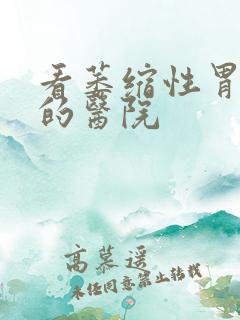 看萎缩性胃
的醫院
高慕遥
未经同意禁止转载